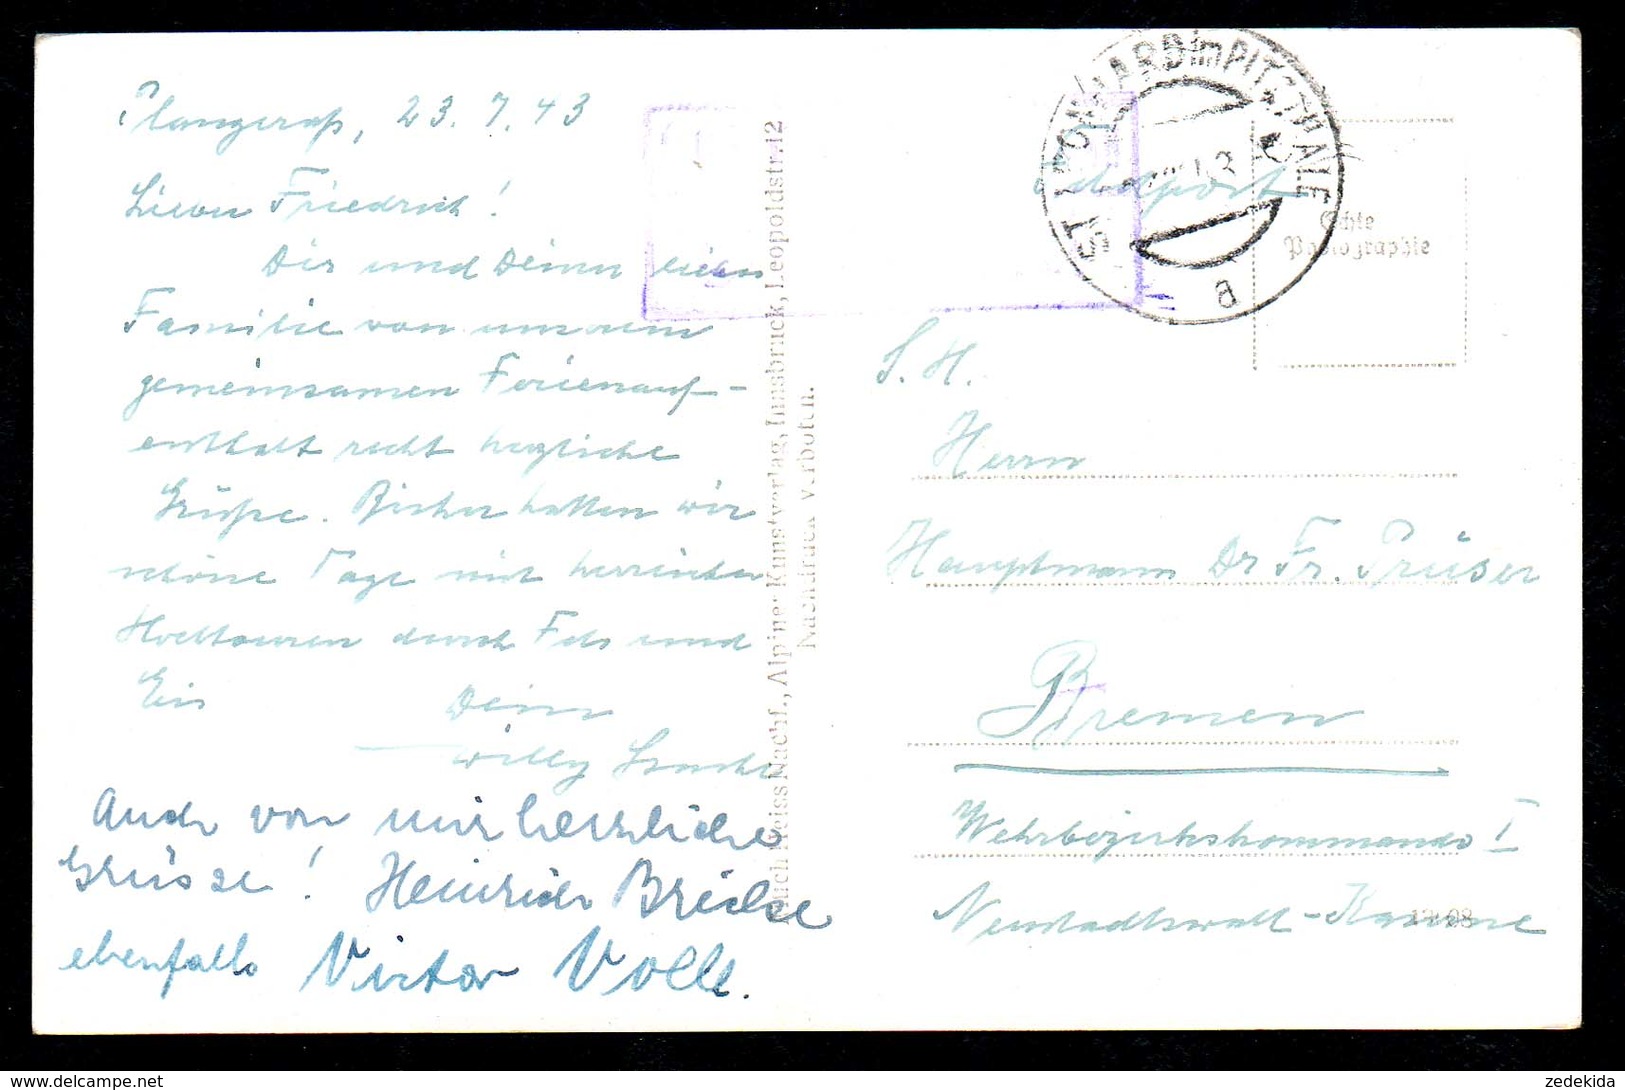 Plangeroß, 23.7.43
Lieber Friedrich!
Dir und Deiner lieben
Familie von unserem
gemeinsamen Ferienauf-
enthalt recht herzliche
Grüße. Bisher hatten wir
schöne Tage mit herrlichen
Hochtouren durch Fels und
Eis Dein
Willy
Auch von mir herzliche
Grüsse! Heinrich
ebenfalls Viktor Volle.
Nachf., Alpiner Kunstverlag, Innsbruck, Leopoldstr. 12
Nachdruck verboten.
ST. LEONHARD im PITZTHALE
a
Feldpost
Echte
Photographie
S. H.
Herrn
Hauptmann Dr Fr. Prüser
Bremen
Wehrbezirkskommando I
Neustadtswall-Kaserne
zedekida